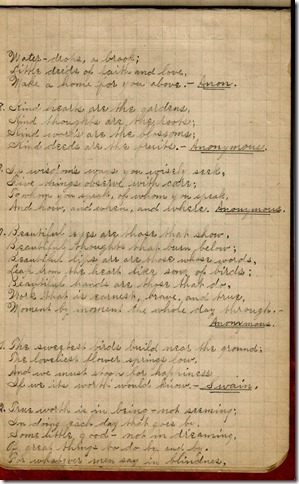 Water-drops, a brook;
Little deeds of faith and love,
Make a home for you above.- Anon.
8. Kind hearts are the gardens,
Kind thoughts are the roots;
Kind words are the blossoms;
Kind deeds are the fruits.- Anonymous.
9. If wisdoms ways you wisely seek,
Five things observe with care;
To whom you speak, of whom you speak,
And how, and when, and where. Anonymous.
Beautiful eyes are those that show,
Beautiful thoughts that burn below;
Beautiful lips are are those whose words,
Leap from the heart like song of birds;
Beautiful hands are those that do,
Work that is earnest, brave, and true,
Moment by moment the whole day through.-
Anonymous.
The sweetest birds build near the ground;
The loveliest flower springs low,
And we must stoop for happiness
If we its worth would know.- Swain.
2. True worth is in being - not seeming;
In doing each day that goes by
Some little good - not in dreaming,
Of great things to do by and by.
For whatever men say in blindnes,